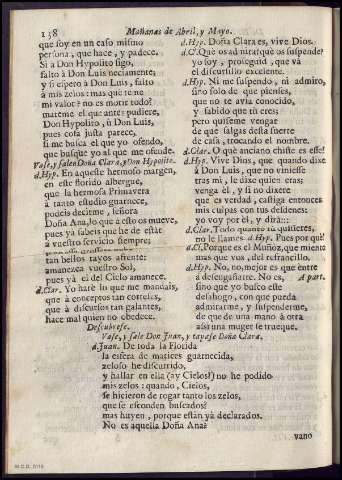 138 Mañanas de Abril, y Mayo.
que soy en un caso mismo
persona, que hace, y padece.
Si a Don Hypolito sigo,
falto à Don Luis neciamente;
y si espero à Don Luis, falto
à mis zelos: mas què teme
mi valor? no es morir todo?
mateme el que antes pudiere,
Don Hypolito, ù Don Luis,
pues cosa justa parece,
si me busca el que yo ofendo,
que busque yo al que me ofende.
Vase, y salen Doña Clara, y Don Hypolito.
d.Hyp. En aqueste hermoso margen,
en este florido albergue,
que la hermosa Primavera
à tanto estudio guarnece,
podeis decirme, señora
Doña Ana, lo que à esto os mueve,
pues yà sabeis que he de estàr
à vuestro servicio siempre;
tan bellos rayos afrente:
amanezca vuestro Sol,
pues yà el del Cielo amanece.
d.Clar. Yo harè lo que me mandais,
que à conceptos tan corteses,
que à discursos tan galantes,
hace mal quien no obedece.
Descubrese.
d.Hyp. Doña Clara es, vive Dios.
d.Cl. Què os admirais? què os suspende?
yo soy, proseguid, que và
el discursillo excelente.
d.Hyp. Ni me suspendo, ni admiro,
sino solo de que pienses,
que no te avia conocido,
y sabido que tù eres;
pero quiseme vengar
de que salgas desta suerte
de casa, trocando el nombre.
d.Clar. O què anciano chiste es esse!
d.Hyp. Vive Dios, que quando dixe
à Don Luis, que no viniesse
tras mi, le dixe quien eras;
venga èl, y si no dixere
que es verdad, castiga entonces
mis culpas con tus desdenes:
yo voy por èl, y dirà::-
d.Clar. Todo quanto tù quisieres,
no le llames. d.Hyp. Pues por què?
d.Cl. Porque es el Muñoz, que miente
mas que vos, del refrancillo.
d.Hyp. No, no, mejor es que entre
à desengañarte. No es, A part.
sino que yo busco este
desahogo, con que pueda
admirarme, y suspenderme,
de que de una mano à otra
assi una muger se trueque.
Vase, y sale Don Juan, y tapase Doña Clara.
d.Juan. De toda la Florida
la esfera de matices guarnecida,
zeloso he discurrido,
y hallar en ella (ay Cielos!) no he podido
mis zelos: quando, Cielos,
se hicieron de rogar tanto los zelos,
que se esconden buscados?
mas huyen, porque estàn yà declarados.
No es aquella Doña Ana?
vano